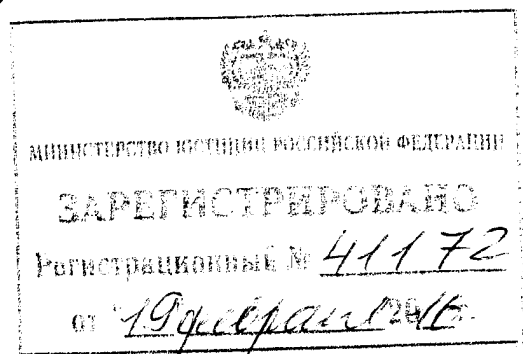 МИНИСТЕРСТВО ЮСТИЦИИ РОССИЙСКОЙ ФЕДЕРАЦИИ
ЗАРЕГИСТРИРОВАНО
Регистрационный № 41172
от "19 февраля 2016 г.